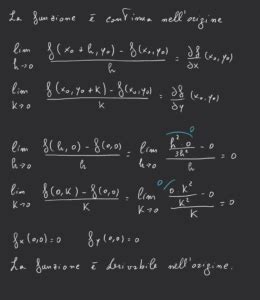 La funzione è continua nell'origine
lim h→0 f(x₀+h, y₀) - f(x₀, y₀) / h = ∂f/∂x (x₀, y₀)
lim k→0 f(x₀, y₀+k) - f(x₀, y₀) / k = ∂f/∂y (x₀, y₀)
lim h→0 f(h, 0) - f(0,0) / h = lim h→0 (h² 0 / 3h² - 0) / h = 0
lim k→0 f(0, k) - f(0,0) / k = lim k→0 (0 · k² / k² - 0) / k = 0
fx(0,0) = 0 fy(0,0) = 0
La funzione è derivabile nell'origine.